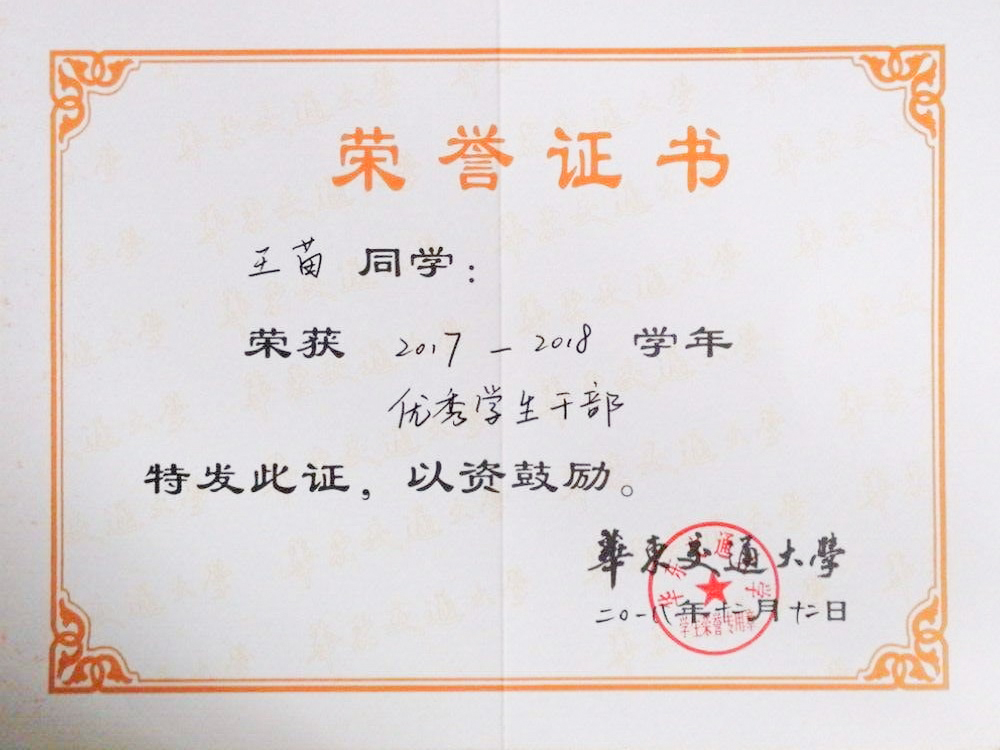 荣誉证书
王苗 同学：
荣获 2017 - 2018 学年
优秀学生干部
特发此证，以资鼓励。
華東交通大學
二〇一八年十二月十二日
华东交通大学
学生荣誉专用章